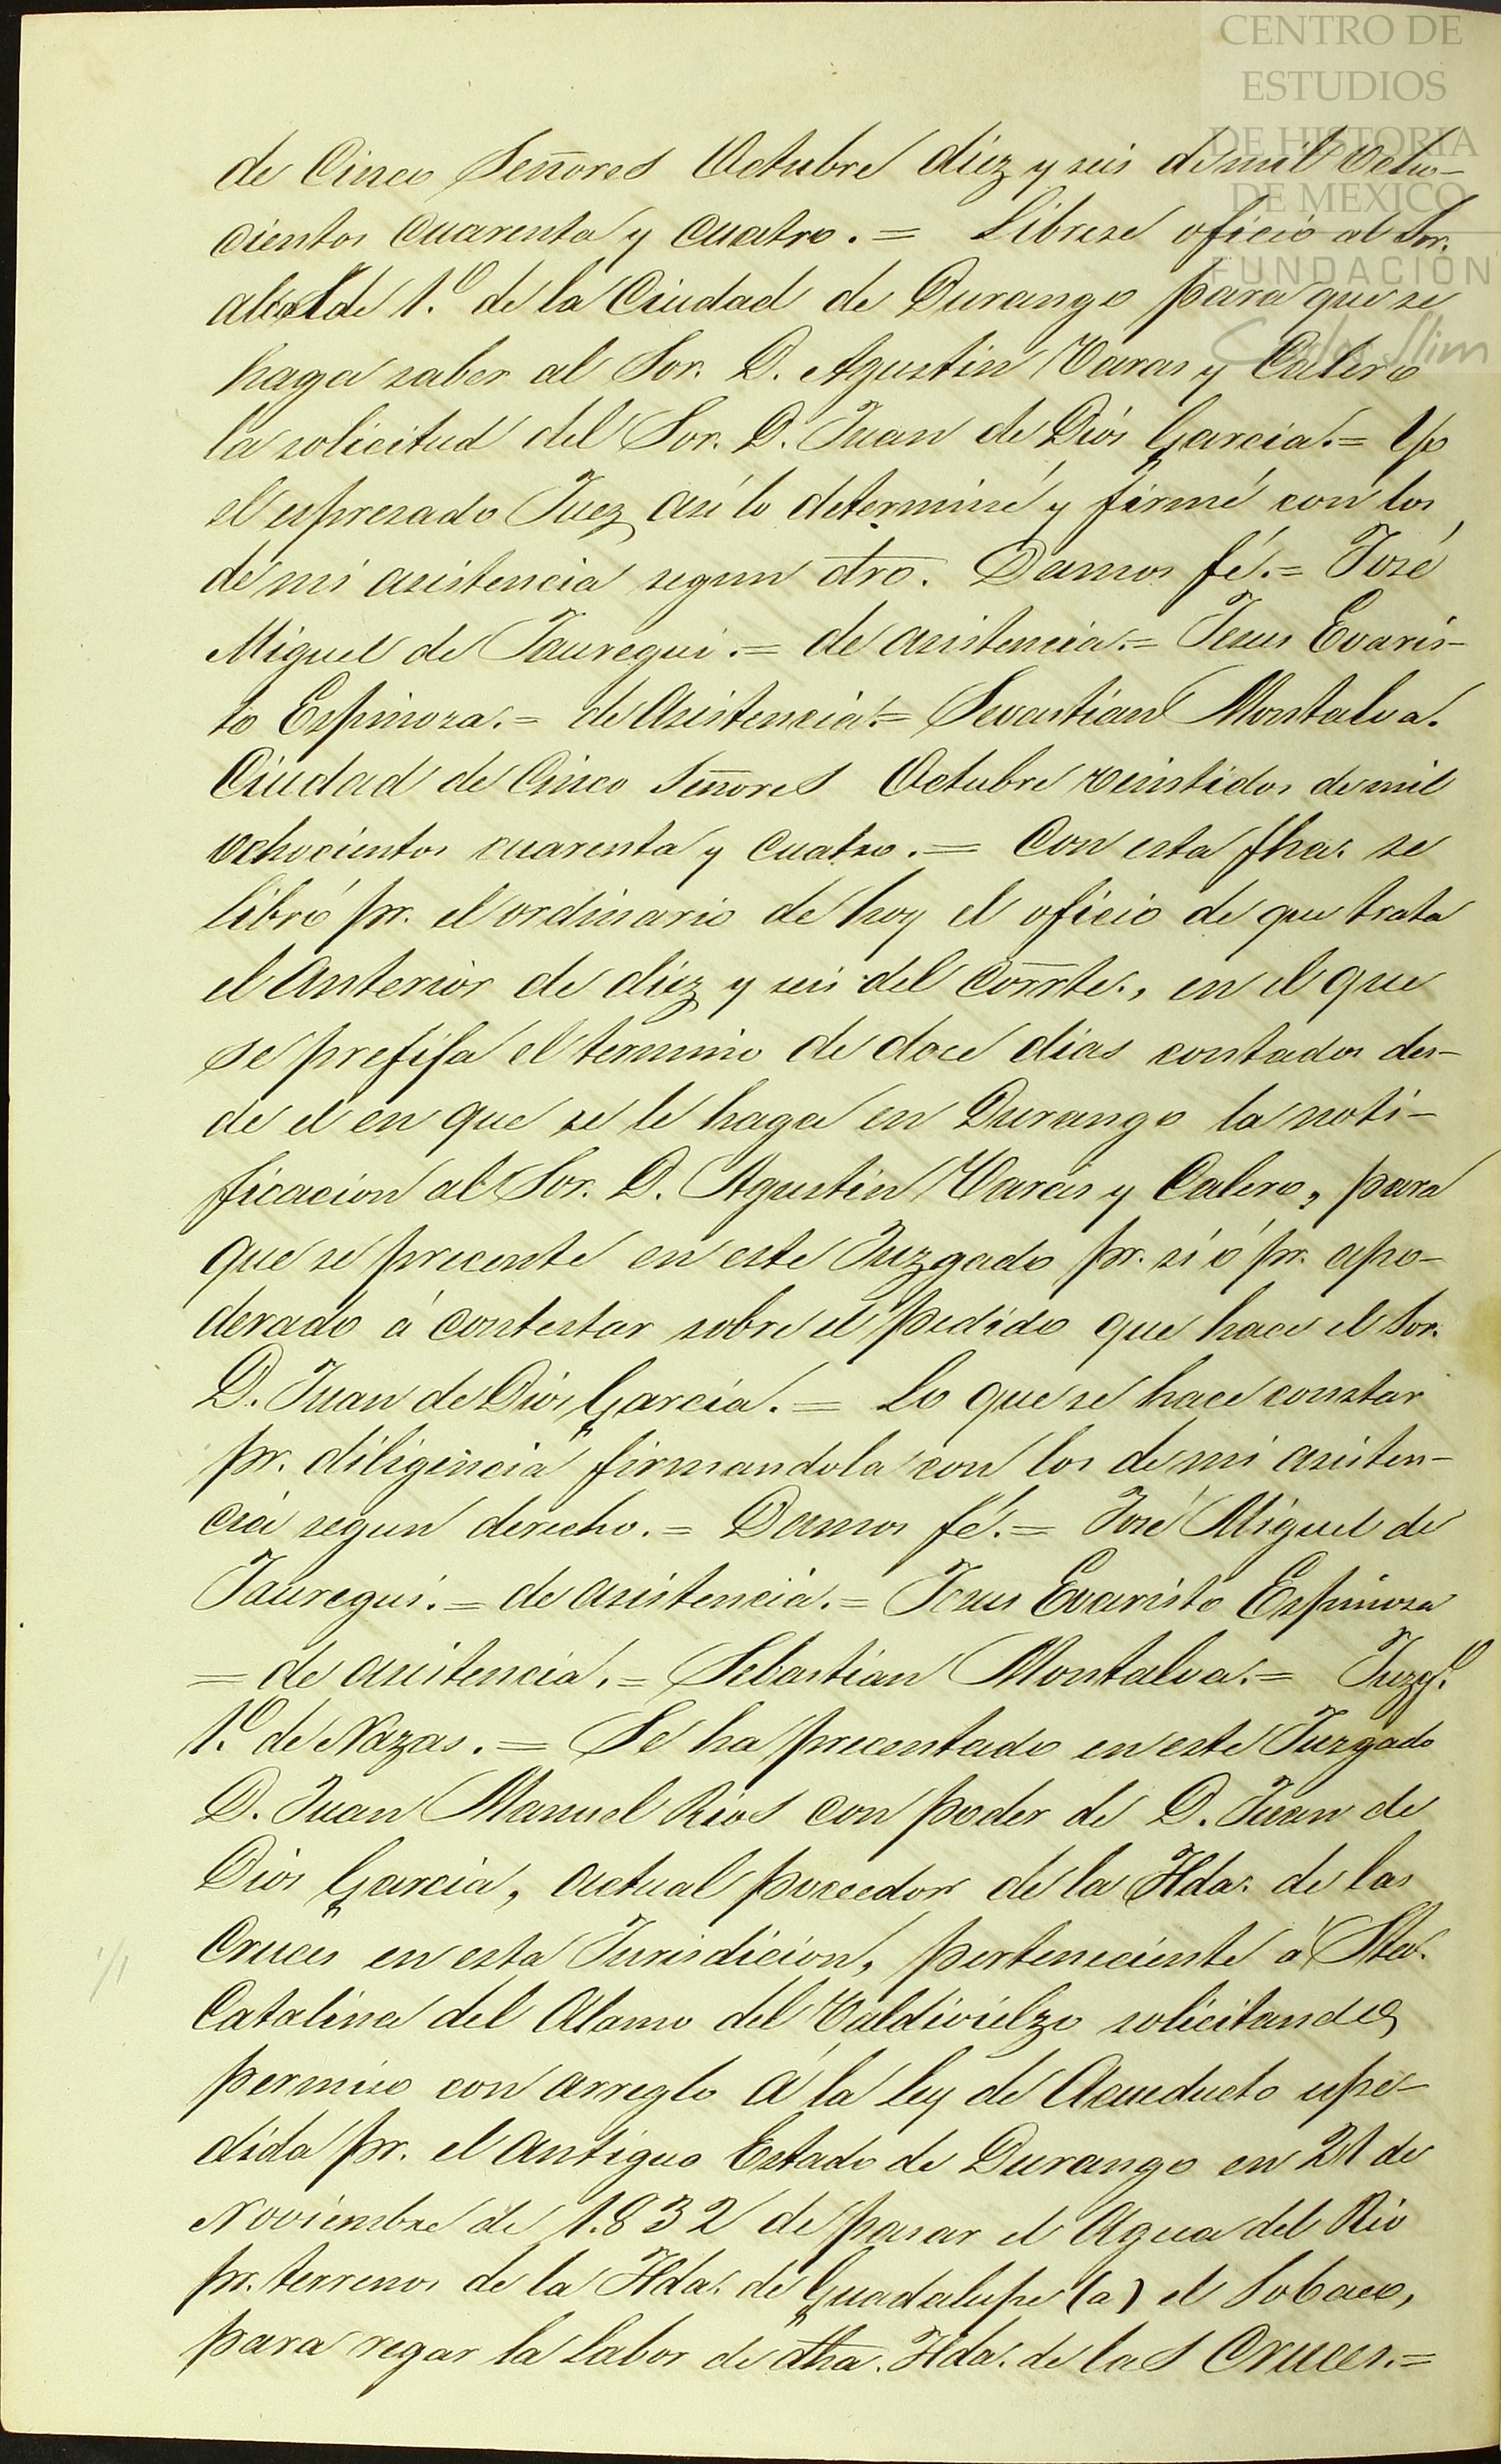 CENTRO DE
ESTUDIOS
DE HISTORIA
DE MEXICO
FUNDACIÓN
Carlos Slim
de Cinco Señores Octubre diez y seis de mil ocho-
cientos cuarenta y cuatro. = Librese oficio al Sor.
alcalde 1.º de la Ciudad de Durango para que se
haga saber al Sor. D. Agustin Varas y Calero
la solicitud del Sor. D. Juan de Dios Garcia. = Yo
el espresado Juez así lo determiné y firmé con los
de mi asistencia segun dro. Damos fé. = José
Miguel de Jauregui. = de asistencia. = Jesus Evaris-
to Espinoza. = de Asistencia. = Sevastian Montalva.
Ciudad de Cinco Señores Octubre veintidos de mil
ochocientos cuarenta y cuatro. = Con esta fha. se
libró pr. el ordinario de hoy el oficio de que trata
el anterior de diez y seis del corrte., en el que
se prefifa el termino de doce dias contados des-
de el en que se le haga en Durango la noti-
ficacion al Sor. D. Agustin Varas y Calero, para
que se precente en este Juzgado pr. sí ó pr. apo-
derado á contestar sobre el pedido que hace el Sor.
D. Juan de Dios Garcia. = Lo que se hace constar
pr. diligencia firmandola con los de mi asisten-
cia segun derecho. = Damos fé. = José Miguel de
Jauregui. = de asistencia. = Jesus Evaristo Espinosa
= de asistencia. = Sebastian Montalva. = Juzgº.
1.º de Nazas. = Se ha precentado en este Juzgado
D. Juan Manuel Rios con poder de D. Juan de
Dios Garcia, actual poceedor de la Hda. de las
Cruces en esta Jurisdicion, perteneciente á Sta.
Catalina del Alamo del Valdivielzo solicitando
permiso con arreglo á la ley de Acueducto espe-
dida pr. el antiguo Estado de Durango en 21 de
Noviembre de 1.832 de pasar el Agua del Rio
pr. terrenos de la Hda. de Guadalupe (a) el Sobaco,
para regar la labor de dha. Hda. de las Cruces. =